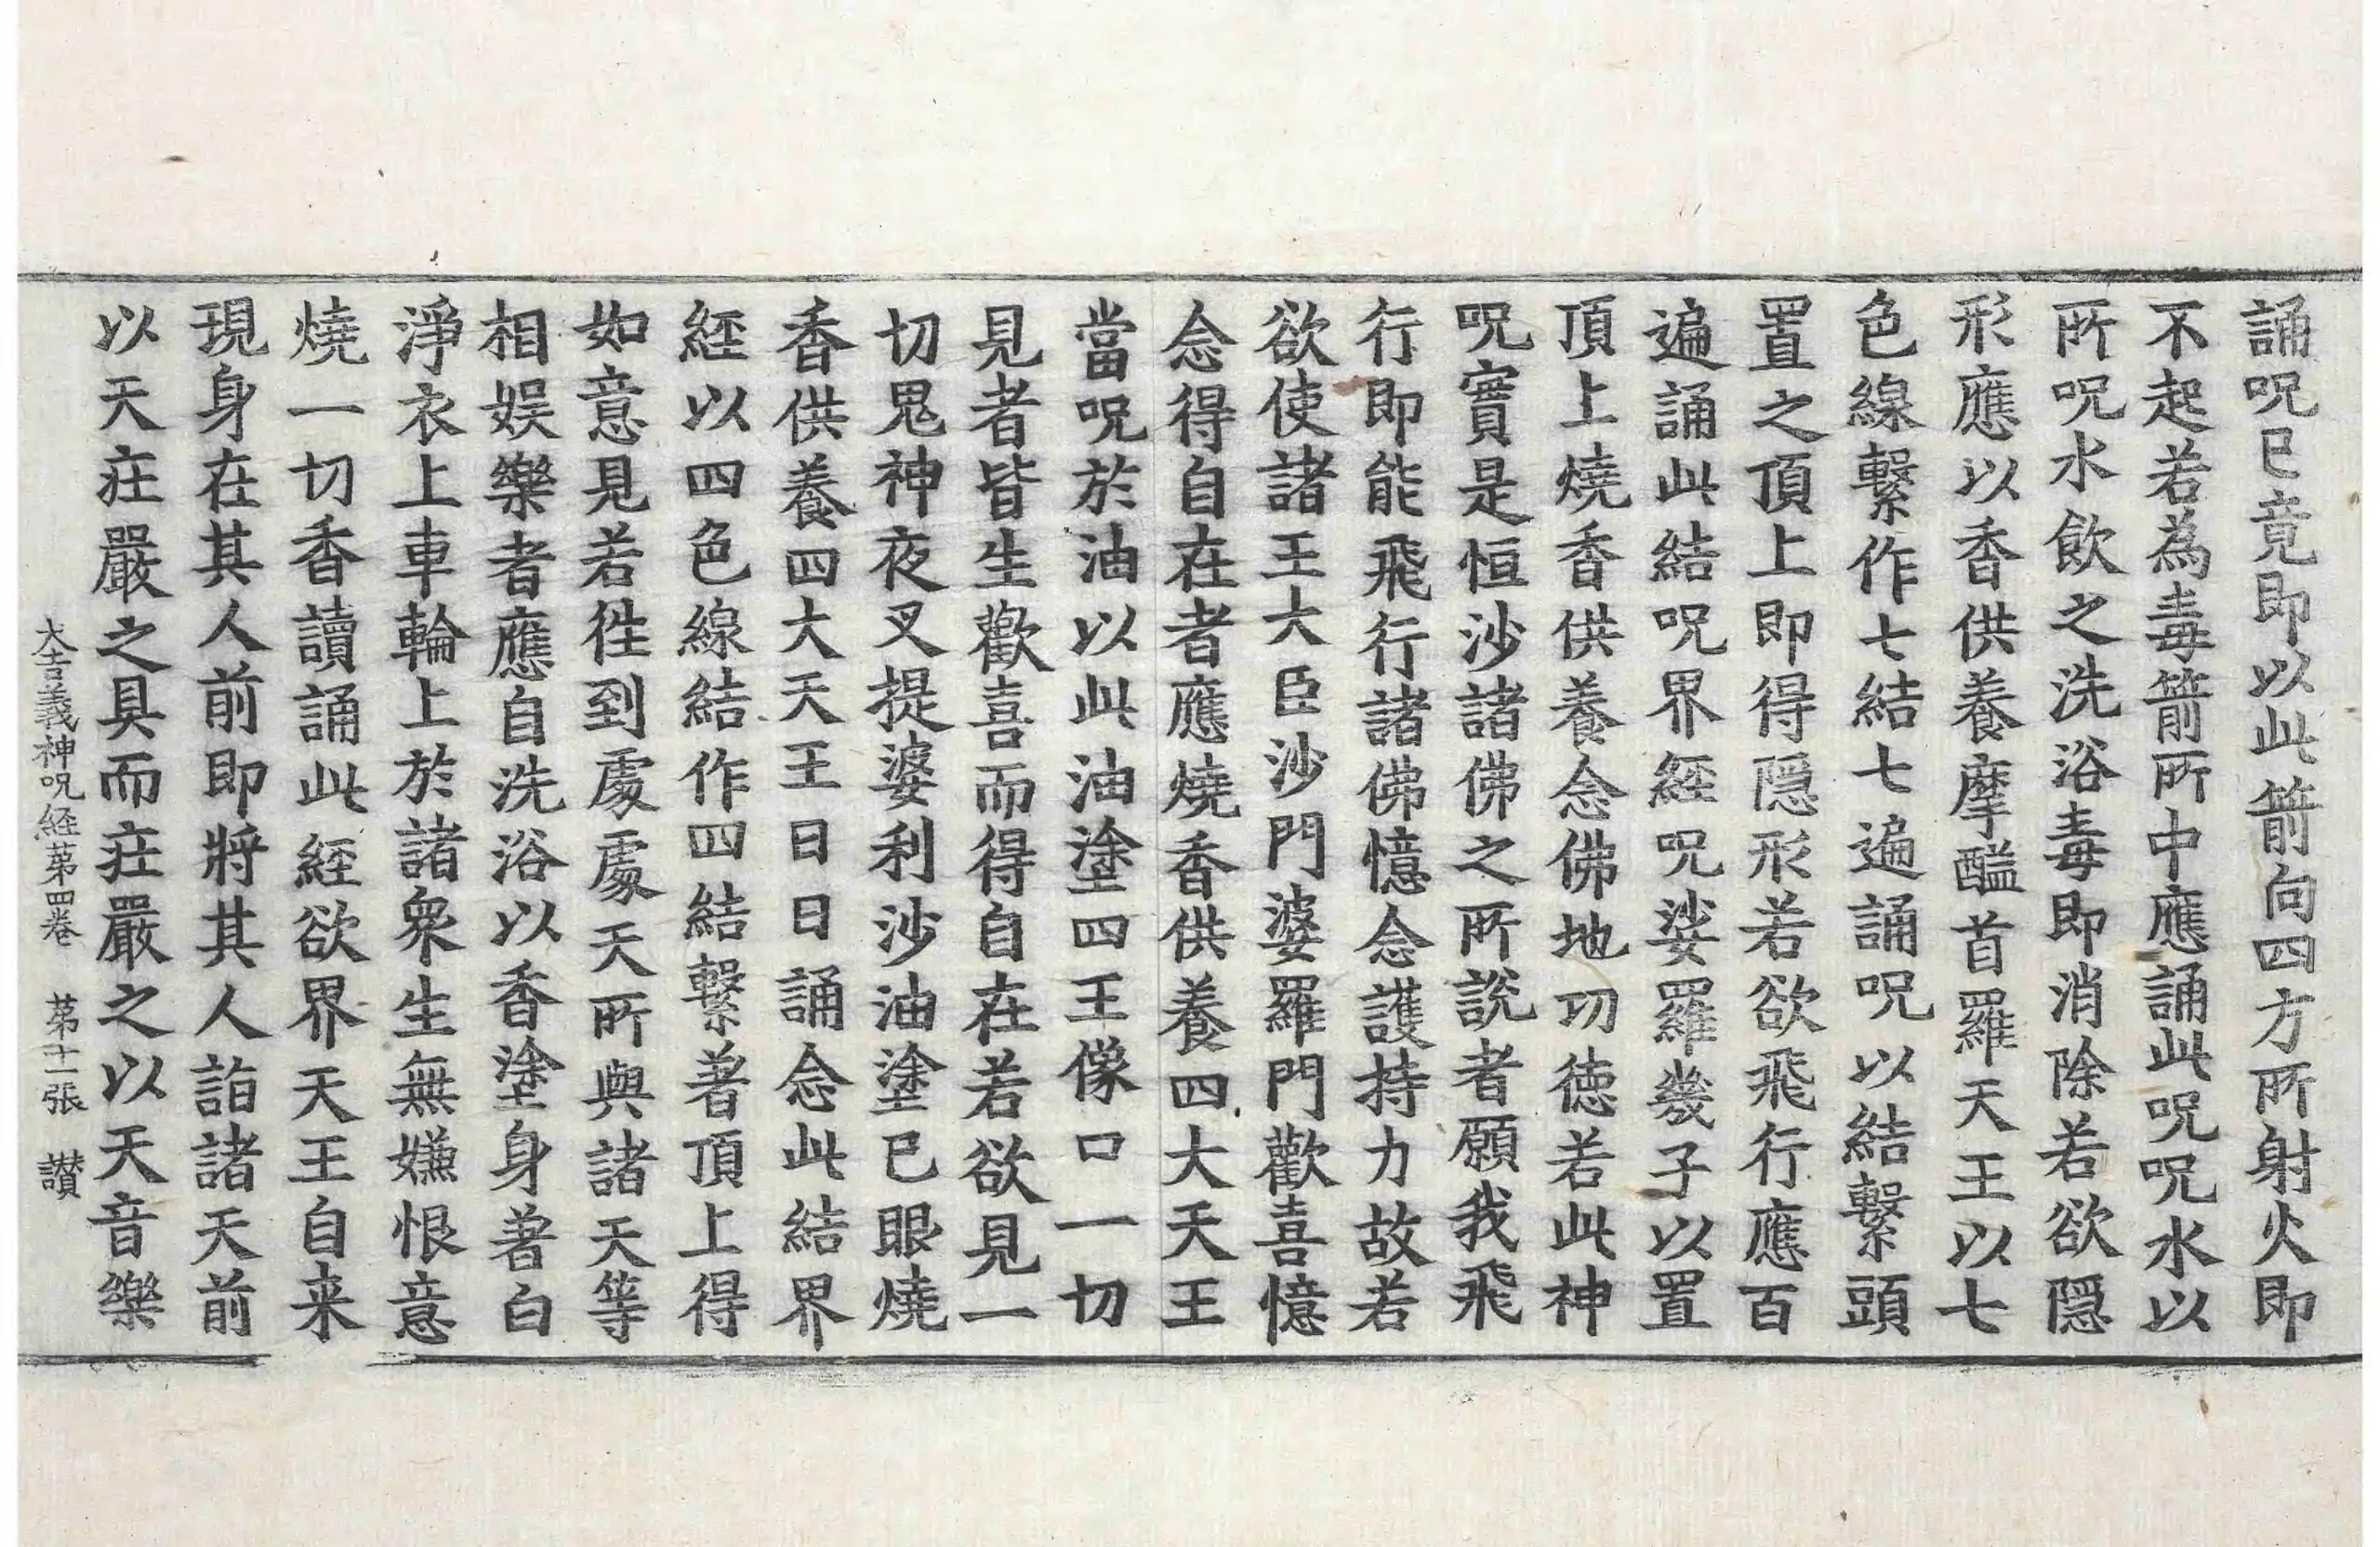 誦呪已竟即以此箭向四方所射火即
不起若為毒箭所中應誦此呪呪水以
所呪水飲之洗浴毒即消除若欲隱
形應以香供養摩醯首羅天王以七
色線繫作七結七遍誦呪以結繫頭
置之頂上即得隱形若欲飛行應百
遍誦此結呪界経呪娑羅㡬子以置
頂上燒香供養念佛地功徳若此神
呪實是恒沙諸佛之所說者願我飛
行即能飛行諸佛憶念護持力故若
欲使諸王大臣沙門婆羅門歡喜憶
念得自在者應燒香供養四大天王
當呪於油以此油塗四王像口一切
見者皆生歡喜而得自在若欲見一
切鬼神夜叉提婆利沙油塗已眼燒
香供養四大天王日日誦念此結界
経以四色線結作四結繫著頂上得
如意見若徃到處處天所與諸天等
相娱樂者應自洗浴以香塗身著白
淨衣上車輪上於諸衆生無嫌恨意
燒一切香讀誦此経欲界天王自来
現身在其人前即將其人詣諸天前
以天莊嚴之具而莊嚴之以天音樂
大吉義神呪経苐四卷　苐十一張　讃